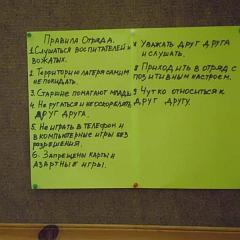 Правила Отряда.
1. Слушаться воспитателей и
вожатых.
2. Территорию лагеря самим
не покидать.
3. Старшие помогают младш
4. Не ругаться и не оскорблять
друг друга.
5. Не играть в телефон и
в компьютерные игры без
разрешения.
6. Запрещены карты и
азартные игры.
7. Уважать друг друга
и слушать.
8 Приходить в отряд с
позитивным настроем.
9 Чутко относиться к
друг другу.